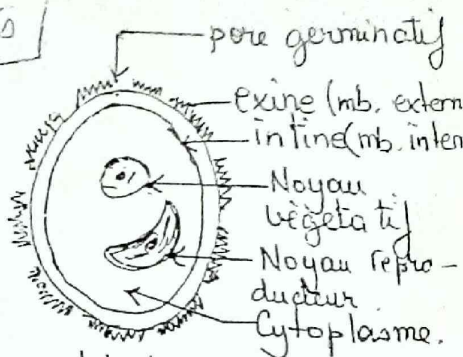 pore germinatif
exine (mb. extern
intine(mb. inter
Noyau
végétatif
Noyau repro-
ducteur
Cytoplasme.